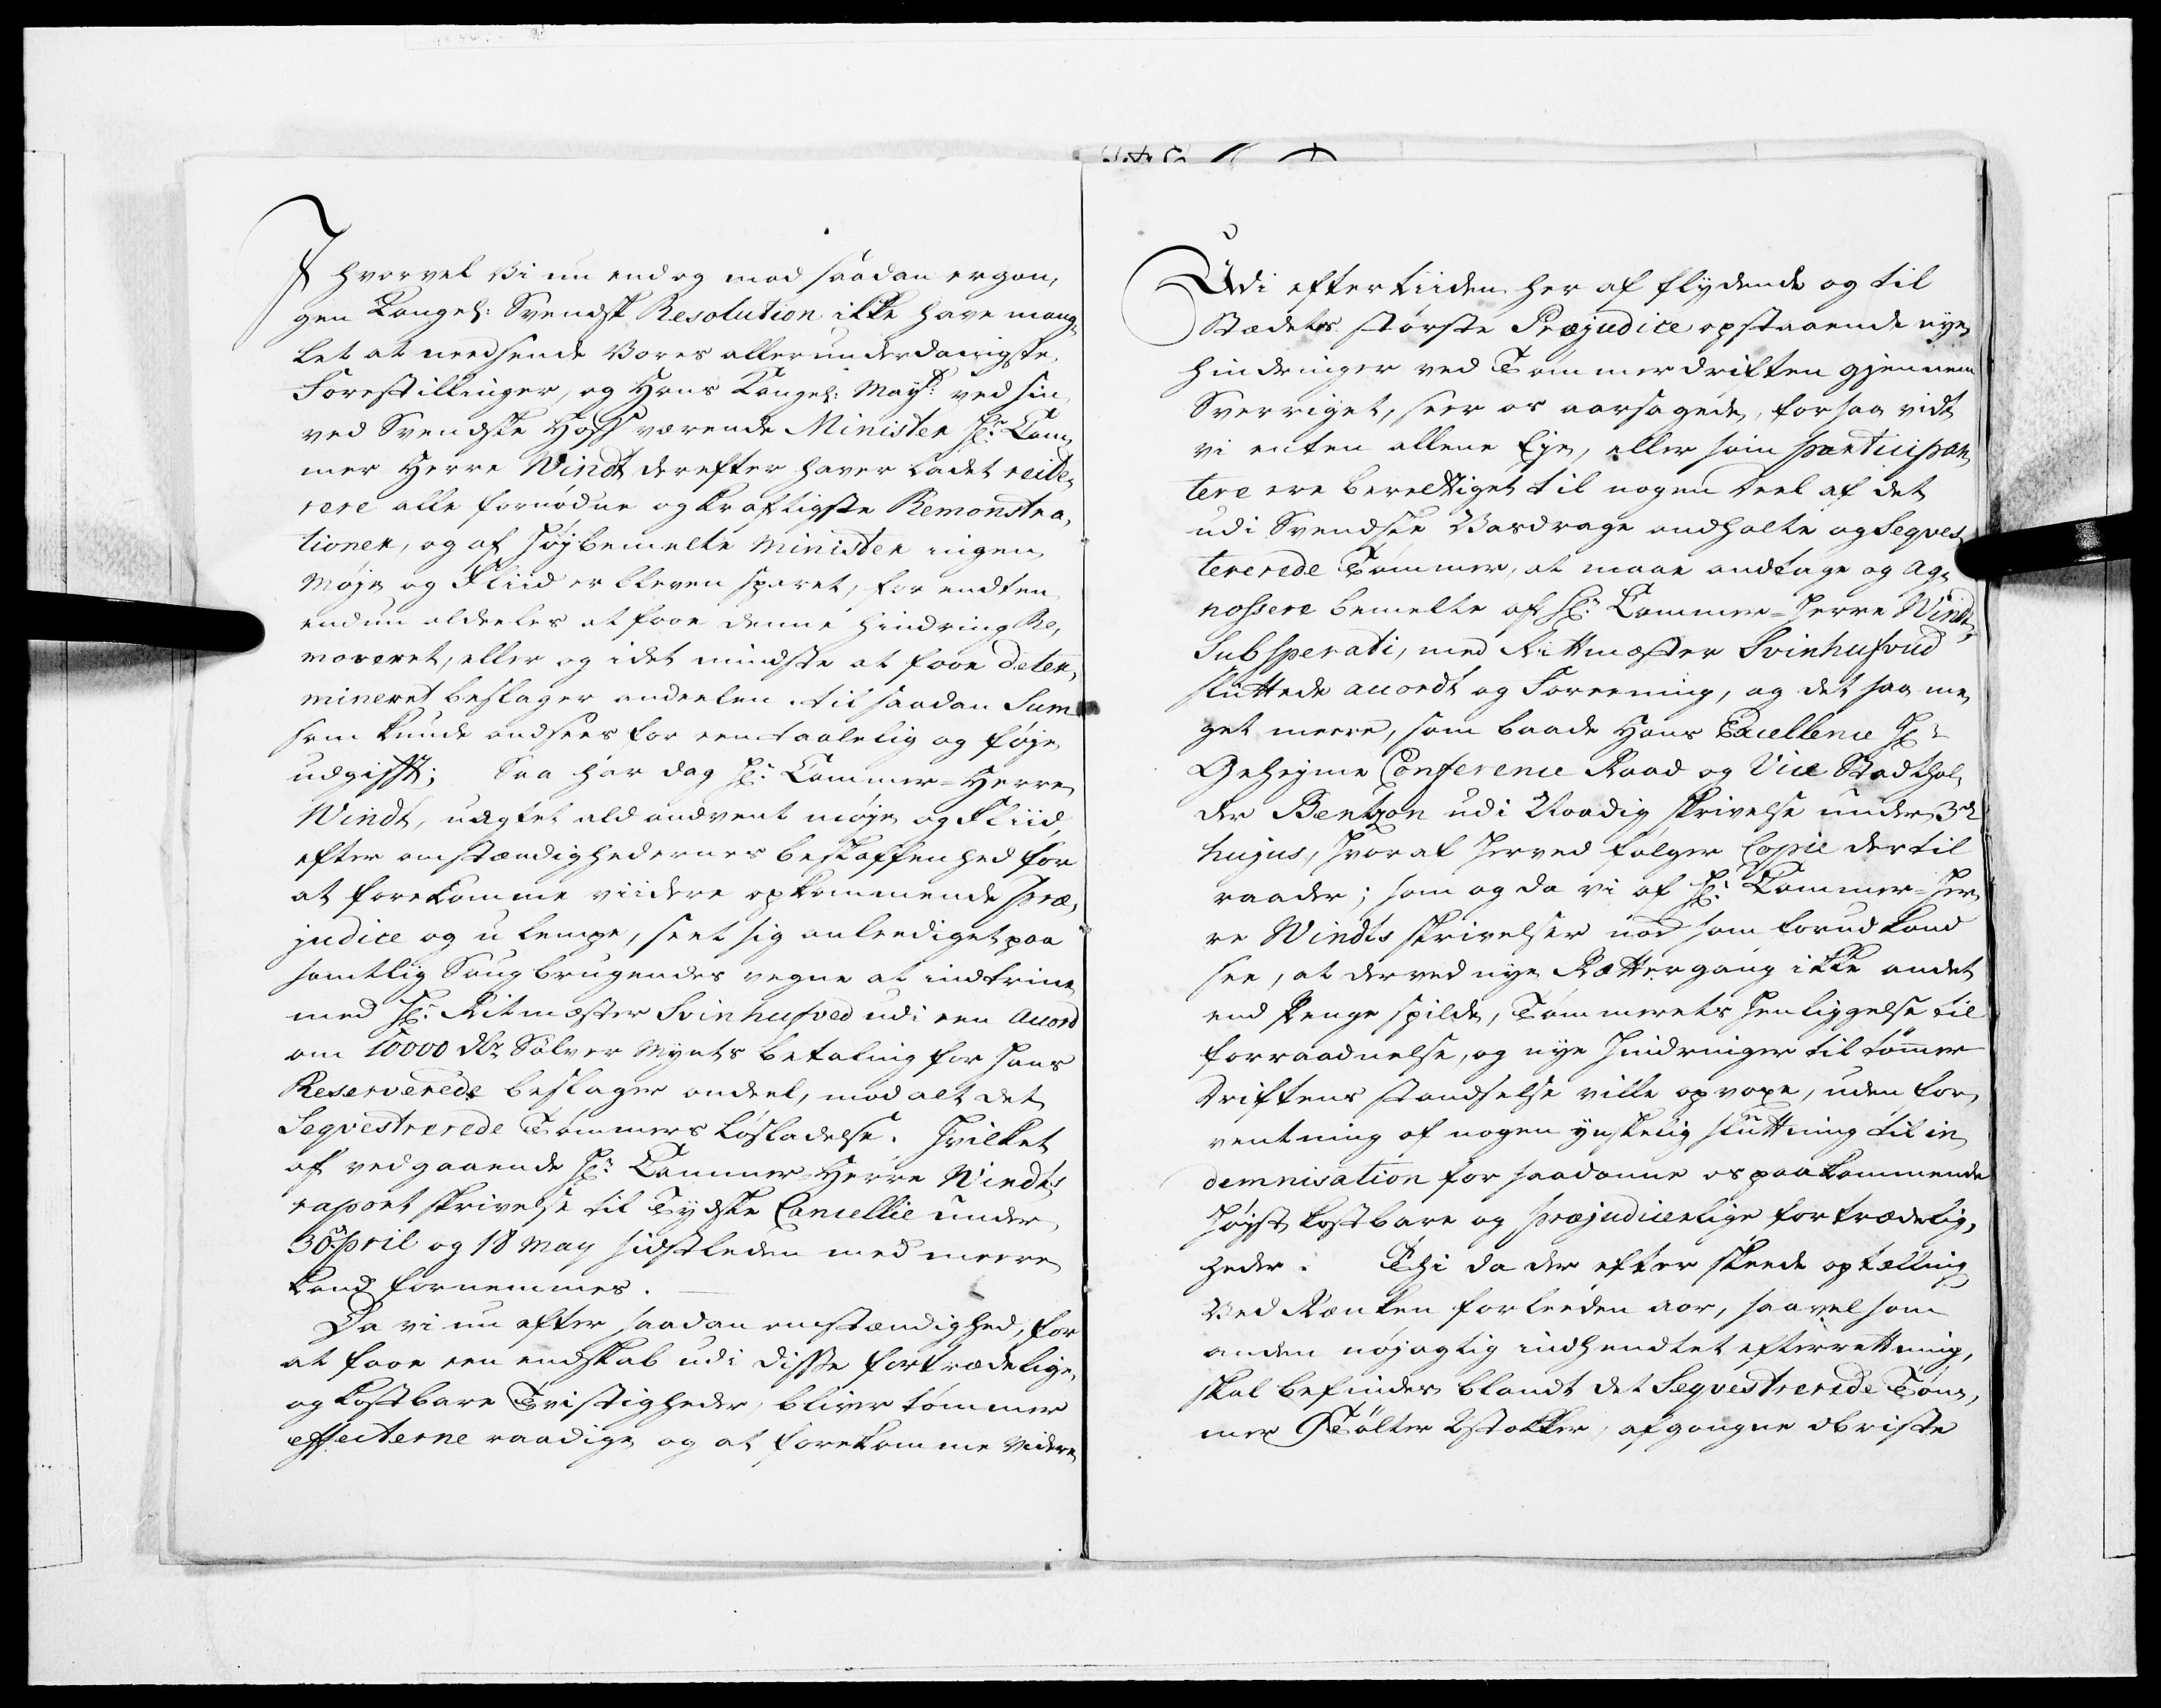 I hvorvel Vi nu endog mod saadan ergan,
gen Kongel: Svendsk Resolution ikke have mang-
let at needsende Vores allerunderdanigste
Forestillinger, og Hans Kongel: Mayt: ved sin
ved Svendske Hoff værende Minister Hr: Cam,
mer Herre Windt derefter haver ladet reite,
rere alle fornødne og kraftigste Remonstra,
tioner, og af høybemelte Minister ingen
Møje og Fliid er bleven sparet, for endten
endnu aldeeles at faae denne hindring Re,
moveret, eller og i det mindste at faae deter,
mineret beslager andeelen til saadan Sum
som kunde andsees for een taalelig og føje
udgifft; Saa har dog Hr: Cammer-Herre
Windt, uagtet ald andvent møje og Fliid,
efter omstændighedernes beskaffenhed for
at forekomme viidere opkommende præ,
judice og u lempe, seet sig anleediget paa
samtlig Saugbrugendes vegne at indtrine
med Hr: Ritmæster Svinhufved udi een Accord
om 10000 dlr Sølver Mynts betaling for hans
Reserverede beslager andeel, mod alt det
Seqvestrerede Tømmers Løsladelse. Hvilket
af vedgaaende Hr: Cammer Herre Windts
raport skrivelse til Tydske Cancellie under
30 April og 18 May sidstleden med meere
kand fornemmes.
Da vi nu efter saadan omstændighed, for
at faae een endskab udi disse fortrædelige
og kostbare Tvistigheder, bliver tømmer
effecterne raadige og at forekomme videre
Udi eftertiiden her af flydende og til
Stædets største Præjudice opstaaende nye
hindringer ved Tømmerdriften gjennem
Sverriget, seer os aarsagede, forsaa vidt
vi enten allene Eje, eller som partticipan,
tere ere berettiget til nogen Deel af det
udi Svendske Vasdrage andholte og Seqves,
tererede Tømmer, at maae andtage og Ag,
nossere bemelte af Hr: Cammer-Herre Windt,
Subsperati, med Ritmæster Svinhufvud
sluttede accordt og Foreening, og det saa me,
get meere, som baade Hans Excellence Hr
Geheyme Conference Raad og Vice Stadthol,
der Bentzon udi Naadig skrivelse under 3de
hujus, hvoraf herved følger Copie dertil
raader; som og da vi af Hr: Cammer-Her,
re Windts skrivelser nod som forud kand
see, at derved nye Rættergang ikke andet
end Penge spilde, Tømmerets henliggelse til
forraadnelse, og nye hindringer til tømer
driftens standselse ville opvoxe, uden for,
ventning af nogen ynskelig sluttning til in
demnisation for saadanne os paakommende
høyst kostbare og præjudicerlige fortrædelig,
heder. Thi da der efter skeede optælling
Ved Ranken forleeden aar, saavel som
anden nøjagtig indhendtet efterrettning,
skal befindes blandt det Seqvestrerede Tøm,
mer 9 Tølter 2 stokker, afgangne Obriste